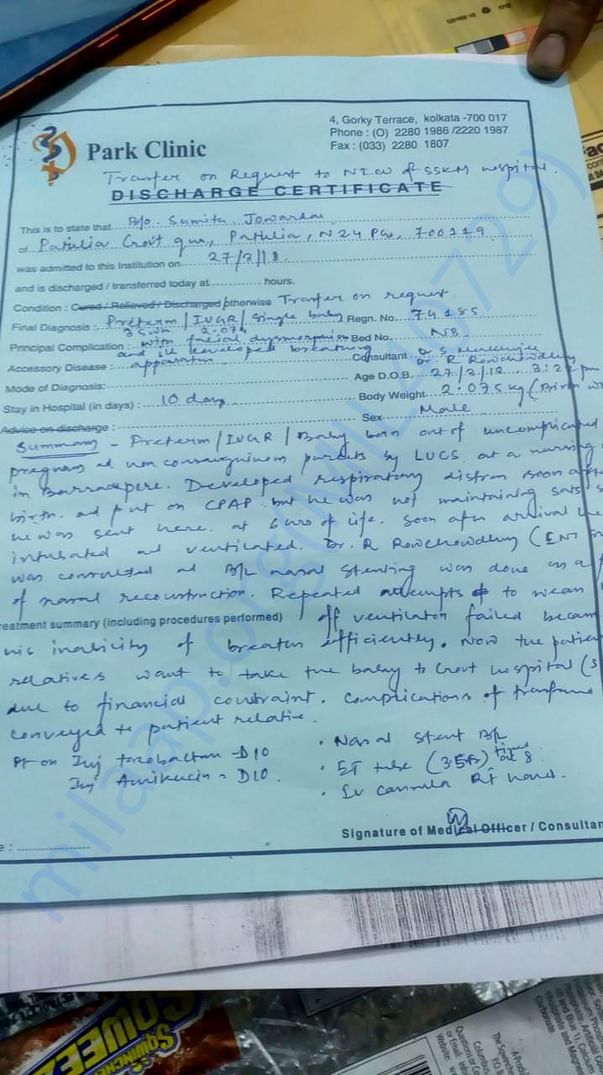 4, Gorky Terrace, kolkata -700 017
Phone : (O) 2280 1986 /2220 1987
Fax : (033) 2280 1807
Park Clinic
Transfer on Request to NICU of SSKM Hospital.
DISCHARGE CERTIFICATE
This is to state that B/o. Sumita Jowarder
of Patulia Govt qua, Patulia, N24 PGS, 700119
was admitted to this Institution on 27/3/18.
and is discharged / transferred today at hours.
Condition : Cured / Relieved / Discharged / otherwise Transfer on request
Final Diagnosis : Preterm / IUGR / Single baby Regn. No. 74185
35 wk 2.074
Principal Complication : with facial dysmorphism Bed No. N8
and ill developed breathing
Accessory Disease : apparatus Consultant Dr S
Dr R Rowchowdhury
Mode of Diagnosis: Age D.O.B. 27/3/18 3:22 pm
Stay in Hospital (in days) : 10 days Body Weight 2.075 kg (Birth
Advice on discharge : Sex Male
Summary - Preterm / IUGR / Baby born out of uncomplicated
pregnancy of non consanguinous parents by LUCS at a nursing
in Barrackpore. Developed respiratory distress soon after
birth and put on CPAP but he was not maintaining sats
he was sent here at 6 hrs of life. Soon after arrival he
intubated and ventilated. Dr. R Rowchowdhury (ENT
was consulted and B/L nasal stenting was done as a
of nasal reconstruction. Repeated attempts to wean
Treatment summary (including procedures performed) off ventilator failed because
his inability of breath efficiently. Now the patient
relatives want to take the baby to Govt hospital (S
due to financial constraint. Complications of transfer
conveyed to patient relative.
Pt on Inj tazobactum - D10 • Nasal stent B/L
Inj Amikacin - D10 • ET tube (3.5) fixed at 8
• IV cannula Rt hand.
Signature of Medical Officer / Consultant
milaap.org(MIL240729)
SQWINCHER
SQWEEZE